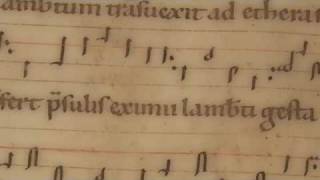 lambtum trasuexit ad ethera
fert p̄sulis eximii lamb̄ti gesta